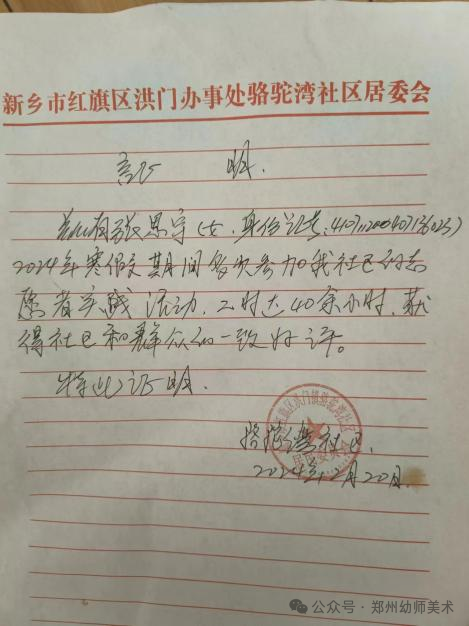 新乡市红旗区洪门办事处骆驼湾社区居委会
证 明
兹有张思宇(女,身份证号:
2024年寒假期间多次参加我社区的志
愿者实践活动,工时达40余小时,获
得社区和群众的一致好评。
特此证明.
骆驼湾社区.
2024年2月20日
红旗区洪门镇骆驼湾社区
公众号·郑州幼师美术